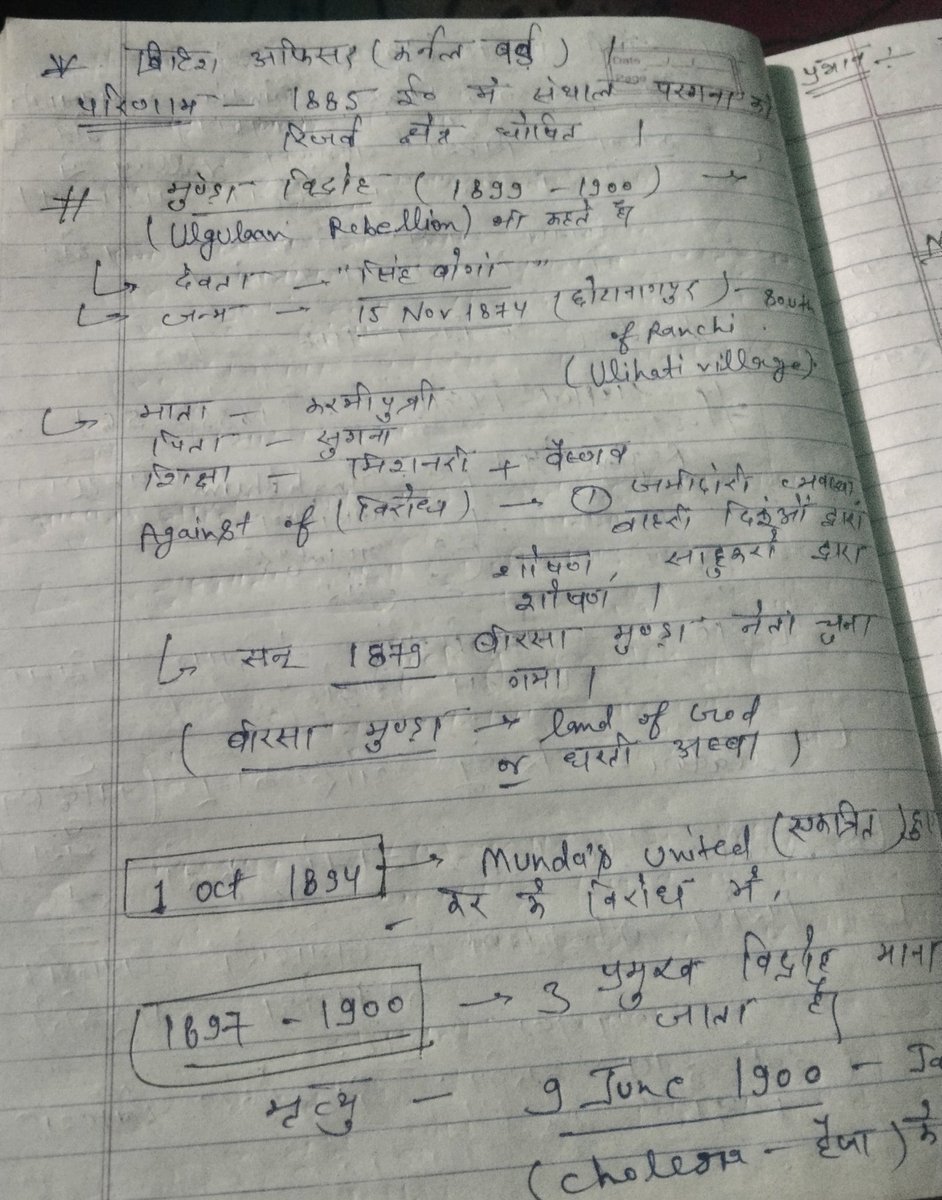 ब्रिटिश आफिसर (कर्नल बर्ड)
Date
Page
परिणाम - 1885 ई० में संथाल परगना को
रिजर्व क्षेत्र घोषित ।
# मुण्डा विद्रोह (1899 - 1900) →
(Ulgulaan Rebellion) भी कहते है।
↳ देवता → "सिंह बोंगा"
↳ जन्म - 15 Nov 1874 (छोटानागपुर) - South
of Ranchi.
(Ulihati village).
↳ माता - करमी पुत्री
पिता - सुगना
शिक्षा - मिशनरी + वैष्णव
Against of (विरोध) → ① जमींदारी व्यवस्था
बाहरी दिकुओं द्वारा
शोषण, साहूकारो द्वारा
शोषण ।
↳ सन् 1879 बीरसा मुण्डा नेता चुना
गया ।
(बीरसा मुण्डा → land of God
or धरती अब्बा)
1 Oct 1894 → Munda's united (एकत्रित) हुए
- कर के विरोध में,
1897 - 1900 → 3 प्रमुख विद्रोह माना
जाता है।
मृत्यु - 9 June 1900 -
(cholera - हैजा) के
प्रभाव :